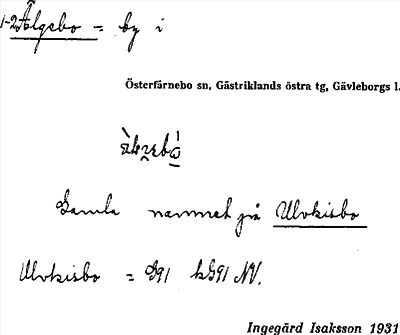 1-2 Älgsbo = by i
Österfärnebo sn, Gästriklands östra tg, Gävleborgs l.
Gamla namnet på Ulvkisbo
Ulvkisbo = G91 kG91 NV.
Ingegärd Isaksson 1931